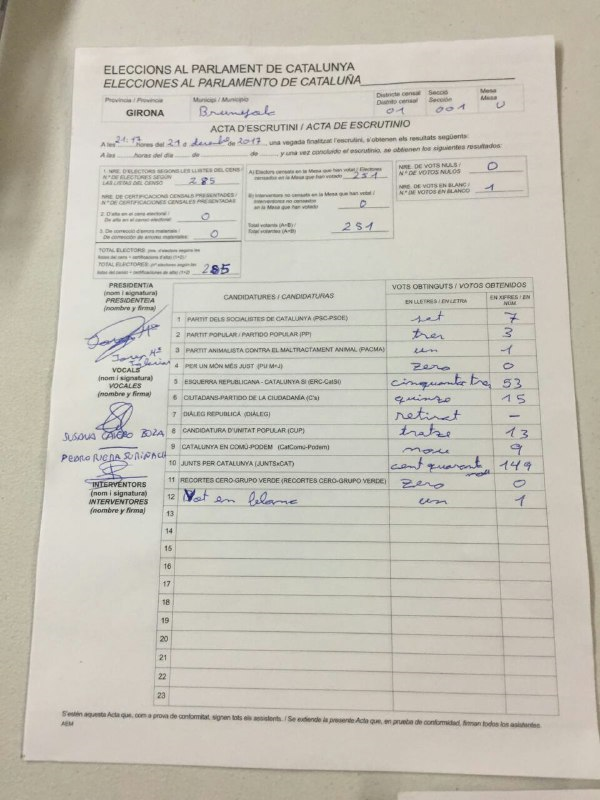 ELECCIONS AL PARLAMENT DE CATALUNYA
ELECCIONES AL PARLAMENTO DE CATALUÑA
Província / Provincia Municipi / Municipio Districte censal Secció Mesa
Distrito censal Sección Mesa
GIRONA Brunyola 01 001 U
ACTA D'ESCRUTINI / ACTA DE ESCRUTINIO
A les 21:17 hores del 21 de desembre de 2017, una vegada finalitzat l'escrutini, s'obtenen els resultats següents:
A las hores del día de de , y una vez concluido el escrutinio, se obtienen los siguientes resultados:
1. NRE. D'ELECTORS SEGONS LES LLISTES DEL CENS /
N.º DE ELECTORES SEGÚN
LAS LISTAS DEL CENSO 285
NRE. DE CERTIFICACIONS CENSALS PRESENTADES /
N.º DE CERTIFICACIONES CENSALES PRESENTADAS
2. D'alta en el cens electoral /
De alta en el censo electoral 0
3. De correcció d'errors materials /
De corrección de errores materiales 0
TOTAL ELECTORS: (nre. d'electors segons les
llistes del cens + certificacions d'alta) (1+2) /
TOTAL ELECTORES: (n.º electores según las
listas del censo + certificaciones de alta) (1+2) 285
A) Electors censats en la Mesa que han votat / Electores
censados en la Mesa que han votado 251
B) Interventors no censats en la Mesa que han votat /
Interventores no censados
en la Mesa que han votado 0
Total votants (A+B) /
Total votantes (A+B) 251
NRE. DE VOTS NULS /
N.º DE VOTOS NULOS 0
NRE. DE VOTS EN BLANC /
N.º DE VOTOS EN BLANCO 1
PRESIDENT/A
(nom i signatura)
PRESIDENTE/A
(nombre y firma)
Josep Mª
VOCALS
(nom i signatura)
VOCALES
(nombre y firma)
SUSANA CALERO BOZA
PEDRO RIERA
INTERVENTORS
(nom i signatura)
INTERVENTORES
(nombre y firma)
CANDIDATURES / CANDIDATURAS VOTS OBTINGUTS / VOTOS OBTENIDOS
EN LLETRES / EN LETRA EN XIFRES / EN NÚM.
1 PARTIT DELS SOCIALISTES DE CATALUNYA (PSC-PSOE) set 7
2 PARTIT POPULAR / PARTIDO POPULAR (PP) tres 3
3 PARTIT ANIMALISTA CONTRA EL MALTRACTAMENT ANIMAL (PACMA) un 1
4 PER UN MÓN MÉS JUST (PU M+J) zero 0
5 ESQUERRA REPUBLICANA - CATALUNYA SÍ (ERC-CatSí) cinquanta tres 53
6 CIUTADANS-PARTIDO DE LA CIUDADANÍA (C's) quinze 15
7 DIÀLEG REPUBLICÀ (DIÀLEG) retirat –
8 CANDIDATURA D'UNITAT POPULAR (CUP) tretze 13
9 CATALUNYA EN COMÚ-PODEM (CatComú-Podem) nou 9
10 JUNTS PER CATALUNYA (JUNTSxCAT) cent quaranta nou 149
11 RECORTES CERO-GRUPO VERDE (RECORTES CERO-GRUPO VERDE) zero 0
12 Vot en blanc un 1
13
14
15
16
17
18
19
20
21
22
23
S'estén aquesta Acta que, com a prova de conformitat, signen tots els assistents. / Se extiende la presente Acta que, en prueba de conformidad, firman todos los asistentes.
AEM